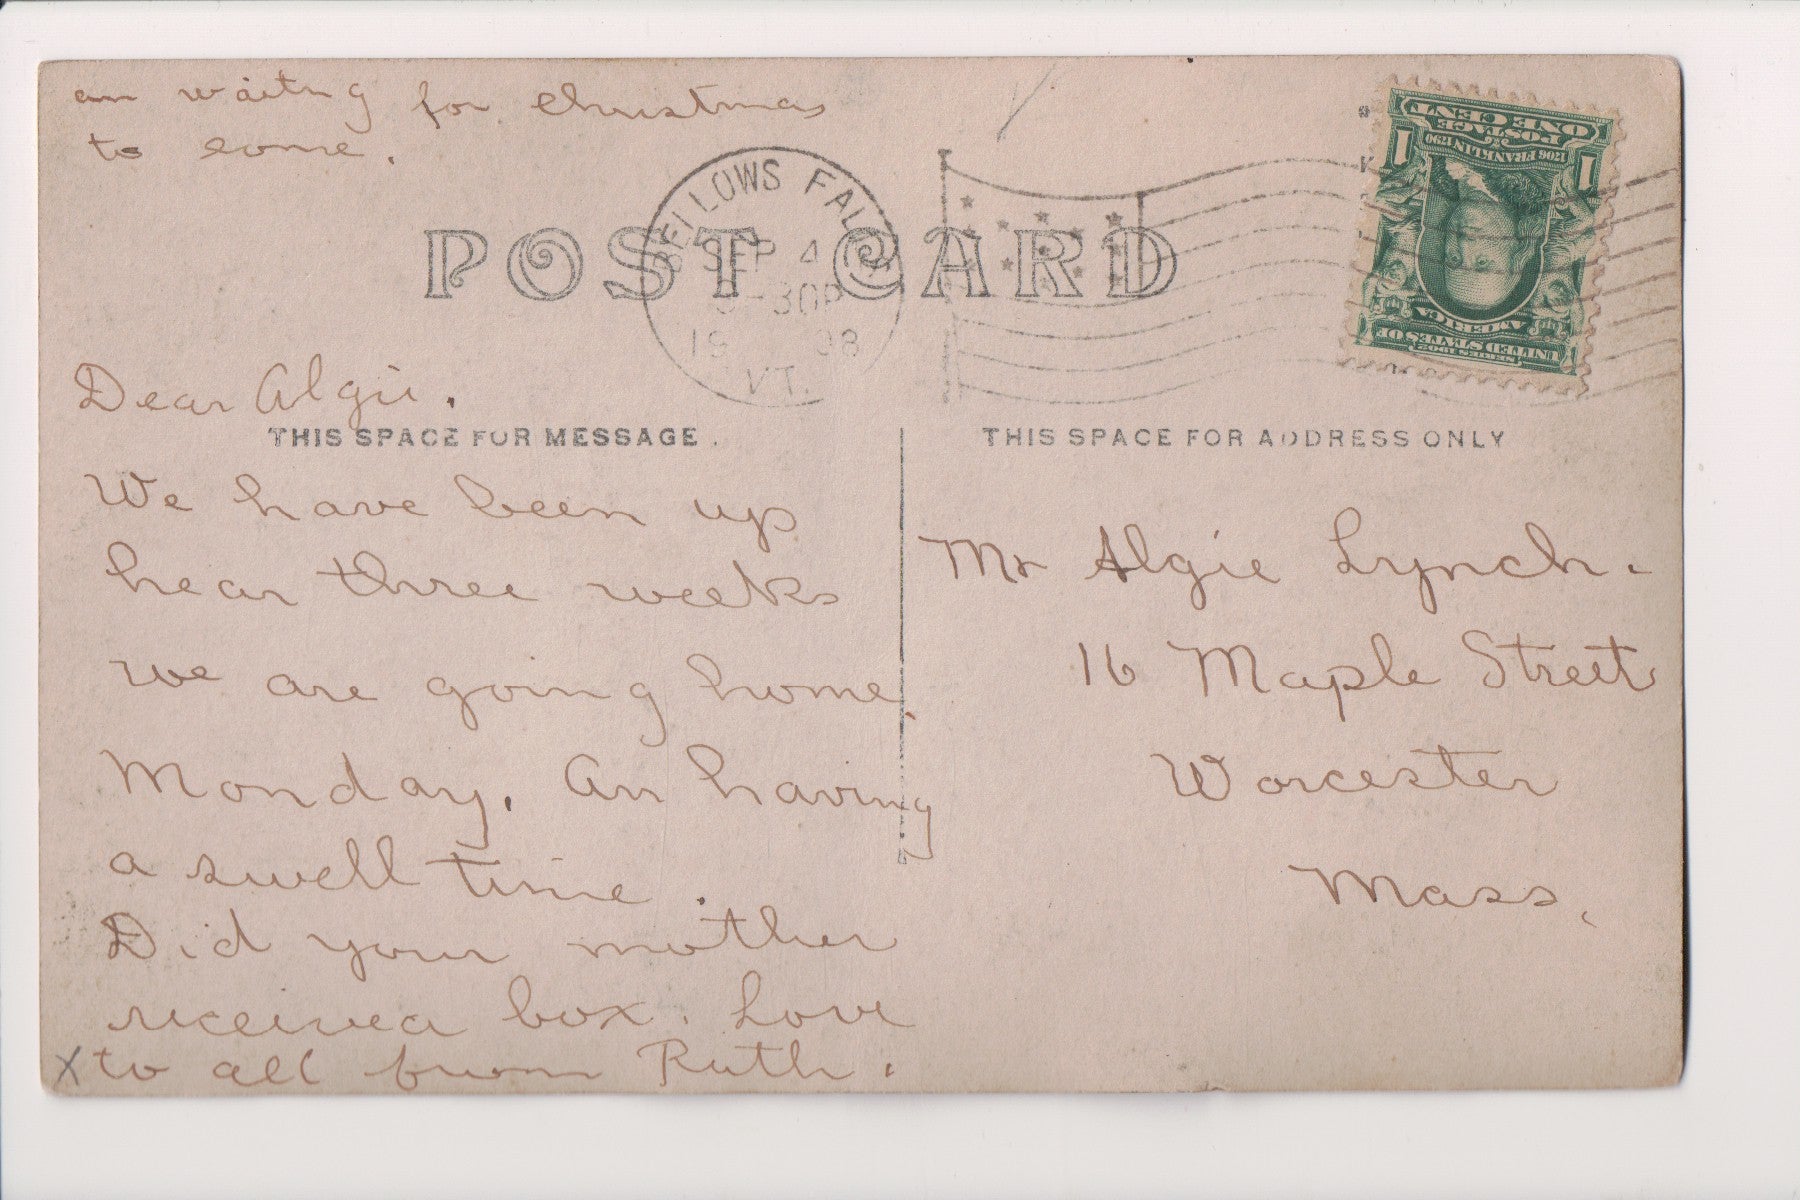 an waitng for christmas
to come.
POST CARD
BELLOWS FALLS
SEP 4
-30P
19 08
VT.
1 POSTAGE 1
ONE CENT
1706 FRANKLIN 1790
SERIES 1902
UNITED STATES OF
AMERICA
Dear Algie.
THIS SPACE FOR MESSAGE.
We have been up
hear three weeks
we are going home
Monday. An having
a swell time.
Did your mother
receivea box. Love
X to all from Ruth.
THIS SPACE FOR ADDRESS ONLY
Mr Algie Lynch.
16 Maple Street
Worcester
Mass.